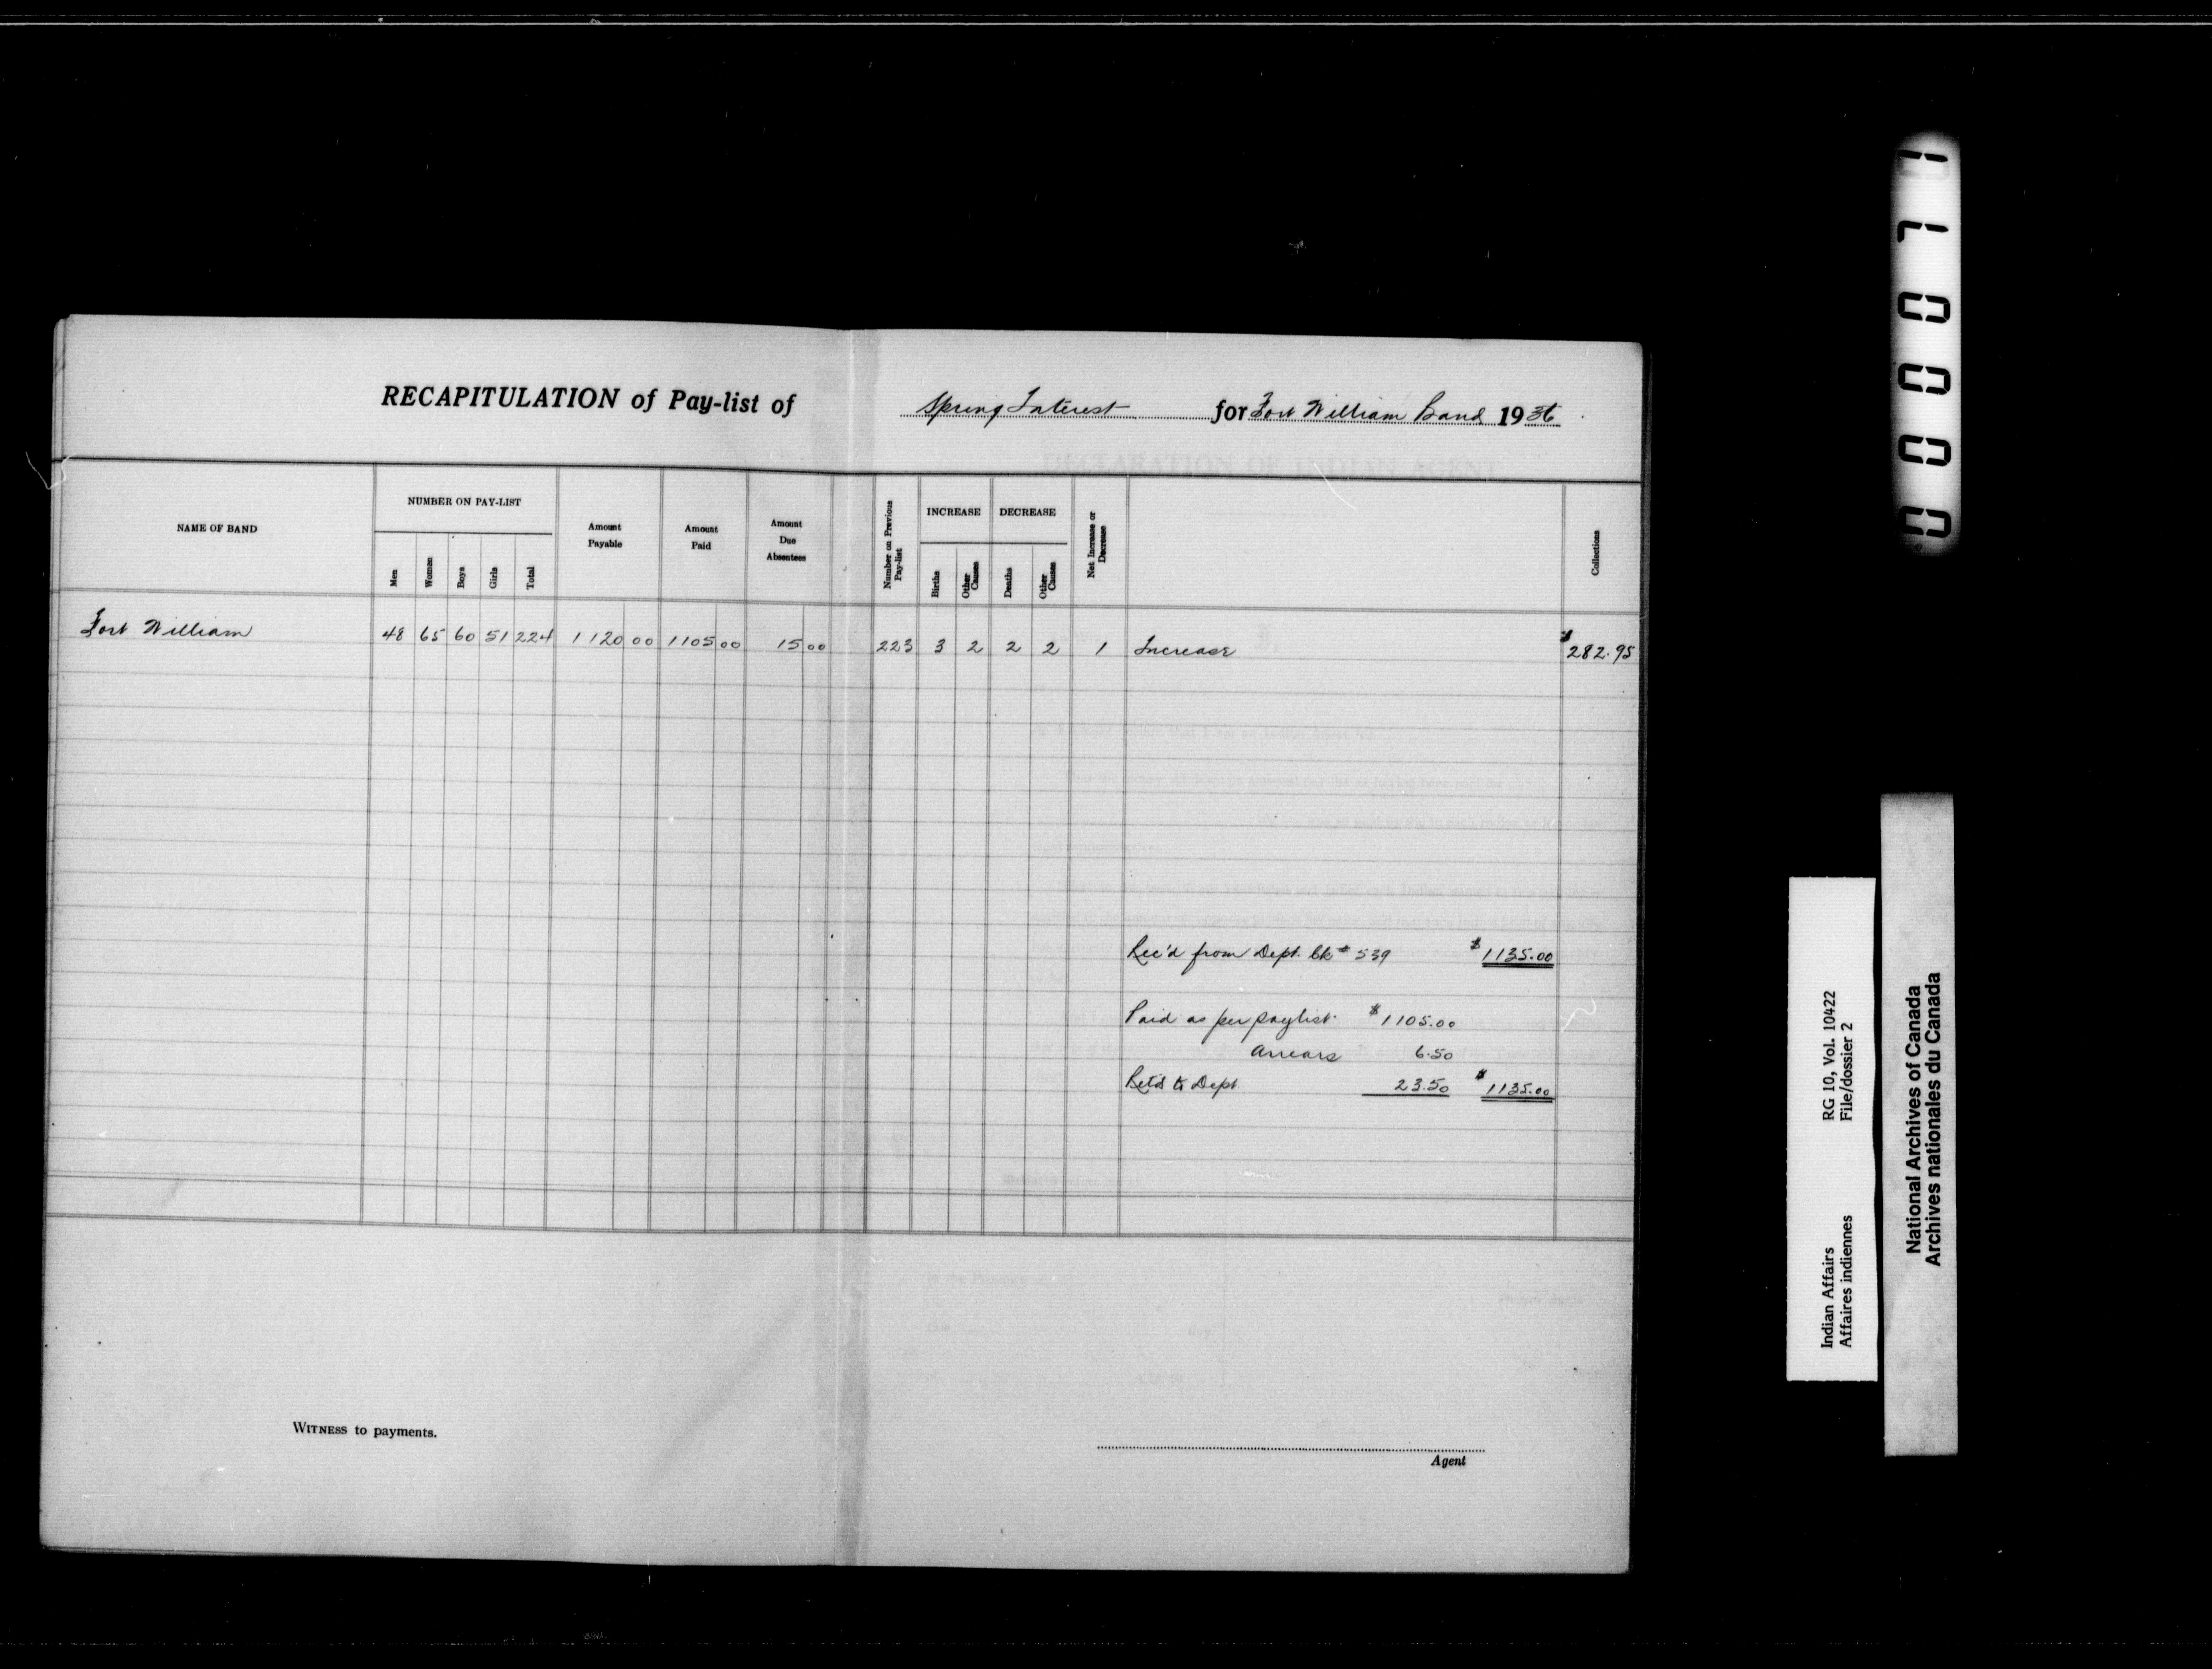 RECAPITULATION of Pay-list of Spring Interest for Fort William Band 1936
NAME OF BAND
NUMBER ON PAY-LIST
Men
Women
Boys
Girls
Total
Amount Payable
Amount Paid
Amount Due Absentees
Number on Previous Pay-list
INCREASE
Births
Other Causes
DECREASE
Deaths
Other Causes
Net Increase or Decrease
Collections
Fort William 48 65 60 51 224 1120 00 1105 00 15 00 223 3 2 2 2 1 Increase $282.95
Rec'd from Dept. Ck # 539 $1135.00
Paid as per paylist. $1105.00
Arrears 6.50
Ret'd to Dept. 23.50 $1135.00
WITNESS to payments.
Agent
000070
Indian Affairs RG 10, Vol. 10422
Affaires indiennes File/dossier 2
National Archives of Canada
Archives nationales du Canada
DECLARATION OF INDIAN AGENT